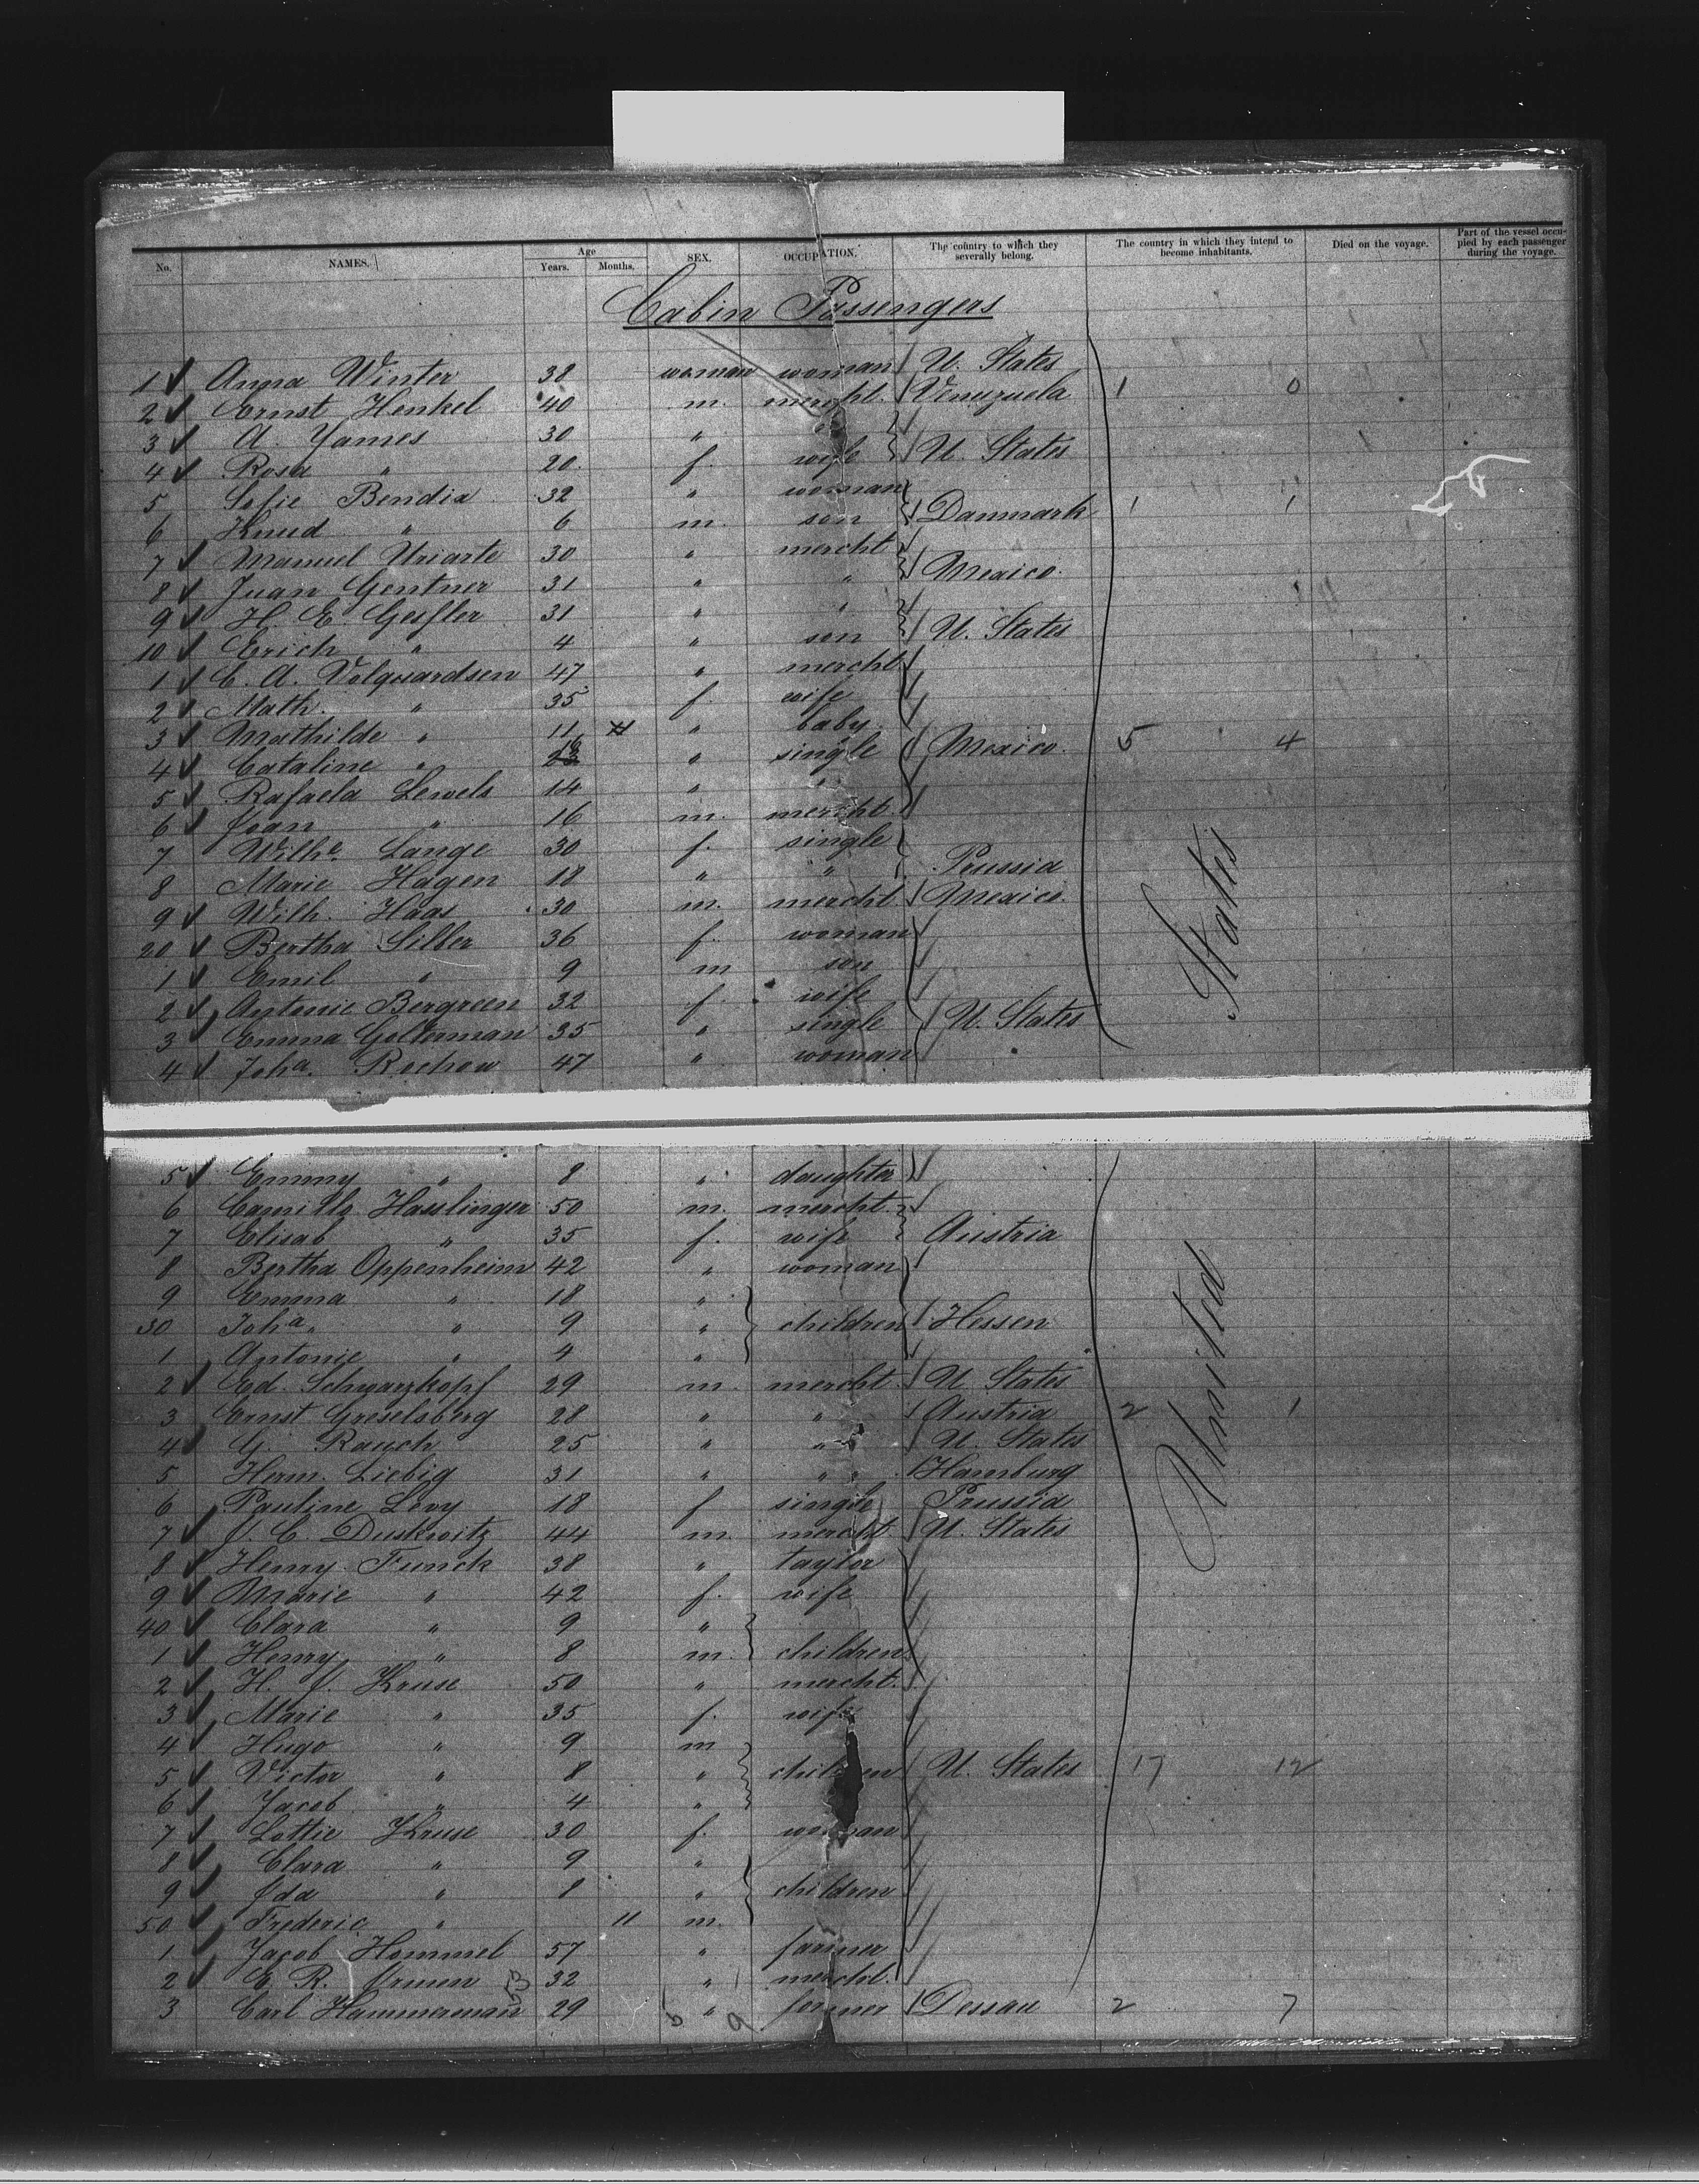 No. NAMES. Age Years. Months. SEX. OCCUPATION. The country to which they severally belong. The country in which they intend to become inhabitants. Died on the voyage. Part of the vessel occupied by each passenger during the voyage.
Cabin Passengers
1 Anna Winter 38 woman woman U. States
2 Ernst Henkel 40 m. mercht. Venuzuela 1 0
3 A. Yames 30 " "
4 Rosa " 20 f. wife U. States
5 Sofie Bendix 32 " woman
6 Knud " 6 m. son Danmark 1 1
7 Manuel Uriarte 30 " mercht
8 Juan Gentner 31 " " Mexico.
9 H. E. Gessler 31 " "
10 Erich " 4 " son U. States
1 C. A. Volquardsen 47 " mercht.
2 Math. " 35 f. wife
3 Mathilde " 11 " baby
4 Cataline " 18 " single Mexico. 5 4
5 Rafaela Lewels 14 " "
6 Joan " 16 m. mercht.
7 Wilhe. Lange 30 f. single
8 Marie Hagen 18 " " Prussia
9 Wilh. Haas 30 m. mercht. Mexico.
20 Bertha Siller 36 f. woman
1 Emil " 9 m son
2 Antonie Bergreen 32 f. wife
3 Emma Golterman 35 " single U. States
4 Joha. Rochow 47 " woman
States
5 Emmy " 8 " daughter
6 Camillo Hasslinger 50 m. mercht.
7 Elisab " 35 f. wife Austria
8 Bertha Oppenheim 42 " woman
9 Emma " 18 "
30 Joha. " 9 " children Hessen
1 Antonie " 4 "
2 Ed. Schwarzkopf 29 m. mercht. U. States
3 Ernst Greselsberg 28 " " Austria 2 1
4 G. Rauch 25 " " U. States
5 Herm. Liebig 31 " " Hamburg
6 Pauline Levy 18 f single Prussia
7 J. C. Duskwitz 44 m. mercht. U. States
8 Henry Funck 38 " taylor
9 Marie " 42 f. wife
40 Clara " 9 "
1 Henry " 8 m. children
2 H. J. Kruse 50 " mercht.
3 Marie " 35 f. wife
4 Hugo " 9 m
5 Victor " 8 " children U. States 17 12
6 Jacob " 4 "
7 Lottie Kruse 30 f. woman
8 Clara " 9 "
9 Ida " 8 " children
50 Frederic " 11 m.
1 Jacob Hommel 57 " farmer
2 32 " mercht.
3 Carl Hammerman 29 " farmer Dessau 2 7
United
53